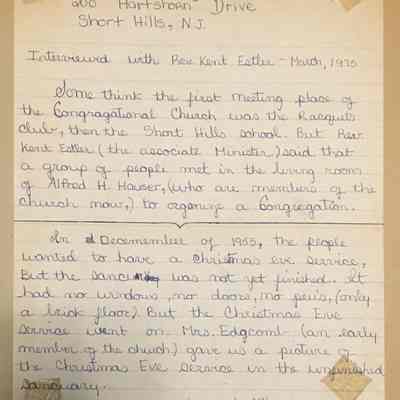 200 Hartshorn Drive
Short Hills, N.J.
Interviewed with Rev. Kent Estler - March, 1975
Some think the first meeting place of
the Congregational Church was the Racquets
club, then the Short Hills school. But Rev.
Kent Estler (the associate Minister) said that
a group of people met in the living room
of Alfred H. Hauser, (who are members of the
church now,) to organize a Congregation.
In Decemember of 1955, the people
wanted to have a Christmas eve service,
But the was not yet finished. It
had no windows, nor doors, no pews, (only
a brick floor). But the Christmas Eve
service went on. Mrs. Edgcomb (an early
member of the church) gave us a picture of
the Christmas Eve service in the unfinished
sanctuary.